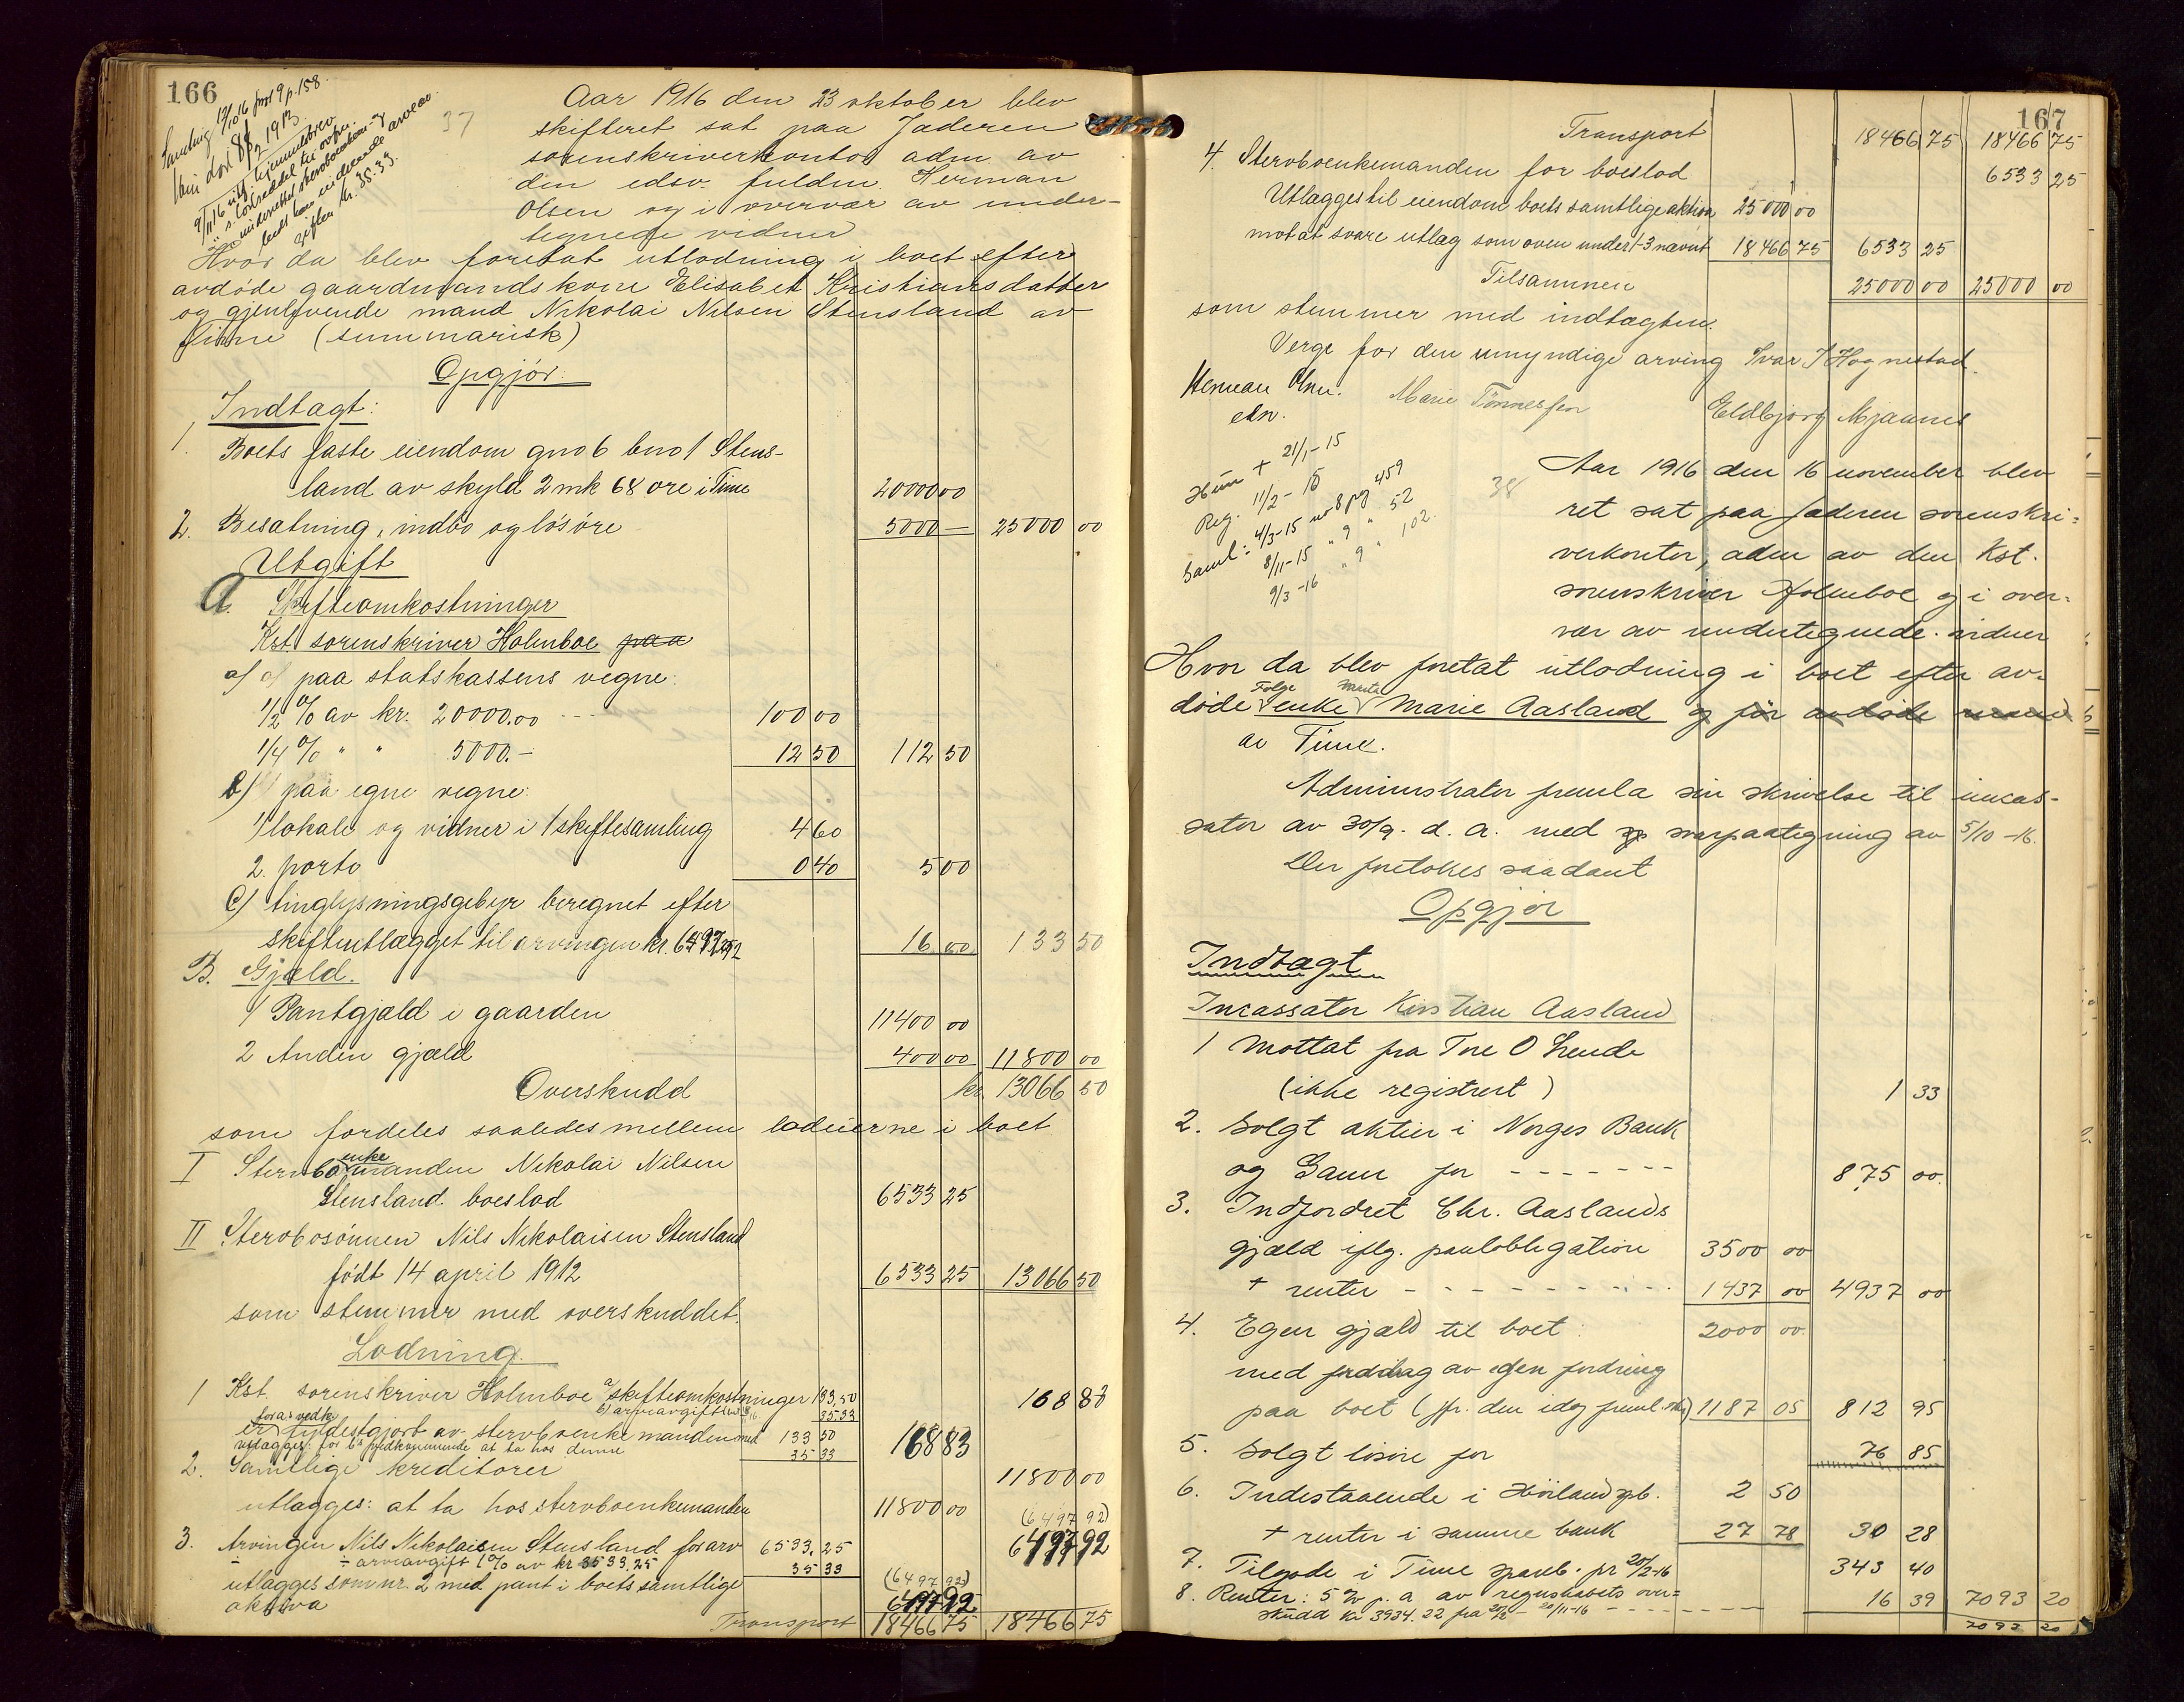 166
Samling 12/10 16 prot 9 p. 158.
37
Aar 1916 den 23 oktober blev
skifteret sat paa Jæderen
sorenskriverkontor adm. av
den edsv. fuldm. Herman
Olsen og i overvær av under-
tegnede vidner
Hvor da blev foretat utlodning i boet efter
avdøde gaardmandskone Elisabet Kristiansdatter
og gjenlevende mand Nikolai Nilsen Stensland av
Time (summarisk)
Opgjør:
Indtægt:
1. Boets faste eiendom gno 6 bno 1 Stens-
land av skyld 2 mk 68 øre i Time 20000 00
2. Besætning, indbo og løsøre 5000 — 25000 00
Utgift
A. Skifteomkostninger
Kst. sorenskriver Holmboe paa
a) paa statskassens vegne:
1/2 % av kr. 20000.00 --- 100 00
1/4 % " " 5000.- 12 50 112 50
b) paa egne vegne:
1) lokale og vidner i 1 skiftesamling 4 60
2. porto 0 40 5 00
c) tinglysningsgebyr beregnet efter
skifteutlægget til arvingen kr. 6497,92 16 00 133 50
B. Gjæld.
1 Pantgjæld i gaarden 11400 00
2 Anden gjæld 400 00 11800 00
Overskudd kr. 13066 50
som fordeles saaledes mellem lodeierne i boet
I Stervboenkemanden Nikolai Nilsen
Stensland boeslod 6533 25
II Stervbosønnen Nils Nikolaisen Stensland
født 14 april 1912 6533 25 13066 50
som stemmer med overskuddet.
Lodning.
1 Kst. sorenskriver Holmboe a/ skifteomkostninger 133,50 168 83
b) arveavgift 35 33
for a's vedk.
er fyldestgjort av stervboenkemanden med 133 50 168 83
utlægges for b's vedkommende at ta hos denne 35 33
2. Samtlige kreditorer 11800 00
utlægges: at ta hos stervboenkemanden 11800 00
(6497 92)
3. Arvingen Nils Nikolaisen Stensland for arv 6533,25 6497 92
÷ arveavgift 1% av kr 3533.25 35 33
utlægges som nr. 2 med pant i boets samtlige (6497 92)
aktiva 6497 92
Transport 18466 75 18466 75
167
Transport 18466 75 18466 75
4. Stervboenkemanden for boeslod 6533 25
Utlægges til eiendom boets samtlige aktiva 25000 00
mot at svare utlæg som oven under 1-3 nævnt 18466 75 6533 25
Tilsammen 25000 00 25000 00
som stemmer med indtægten.
Verge for den umyndige arving Ivar J Hognestad.
Herman Olsen. Marie Tönnessen Eldbjørg Mjaanes
edsv.
Hun + 21/1 - 15
Reg. 11/2 - 15
Saml: 4/3-15 no 8 pg 459
8/11-15 " 9 " 52
9/3-16 " 9 " 102.
38
Aar 1916 den 16 november blev
ret sat paa Jæderen sorenskri-
verkontor, adm av den Kst.
sorenskriver Holmboe og i over-
vær av undertegnede vidner
Hvor da blev foretat utlodning i boet efter av-
døde Følge enke Marie Aasland og før avdøde mand
av Time.
Administrator fremla sin skrivelse til incas-
sator av 30/9. d. a. med svarpaategning av 5/10 -16.
Der foretokes saadant
Opgjør
Indtægt
Incassator Kristian Aasland
1 Mottat fra Tore O Lende
(ikke registrert) 1 33
2. Solgt aktier i Norges Bank
og Gann for ------- 875 00
3. Indfordret Chr. Aaslands
gjæld iflg. pantobligation 3500 00
+ renter - - - - - - - 1437 00 4937 00
4. Egen gjæld til boet: 2000 00
med fraddrag av egen fordring
paa boet (jfr. den idag freml. skr.) 1187 05 812 95
5. Solgt løsøre for 76 85
6. Indestaaende i Høiland spb. 2 50
+ renter i samme bank 27 78 30 28
7. Tilgode i Time spareb. pr 20/2-16 343 40
8. Renter: 5 % p. a. av regnskabets over-
skudd kr 3934. 22 fra 20/2 - 20/11-16 ------ 16 39 7093 20
7093 20